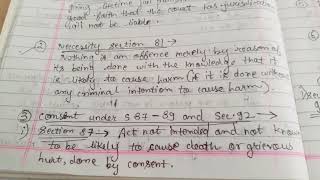 good faith that the court has jurisdiction
will not be liable.
② Necessity section 81 →
Nothing is an offence merely by reason of
its being done with the knowledge that it
is likely to cause harm (if it is done without
any criminal intention to cause harm).
③ consent under s 87-89 and sec. 92 →
i) Section 87 → Act not intended and not know
to be likely to cause death or grievous
hurt, done by consent.